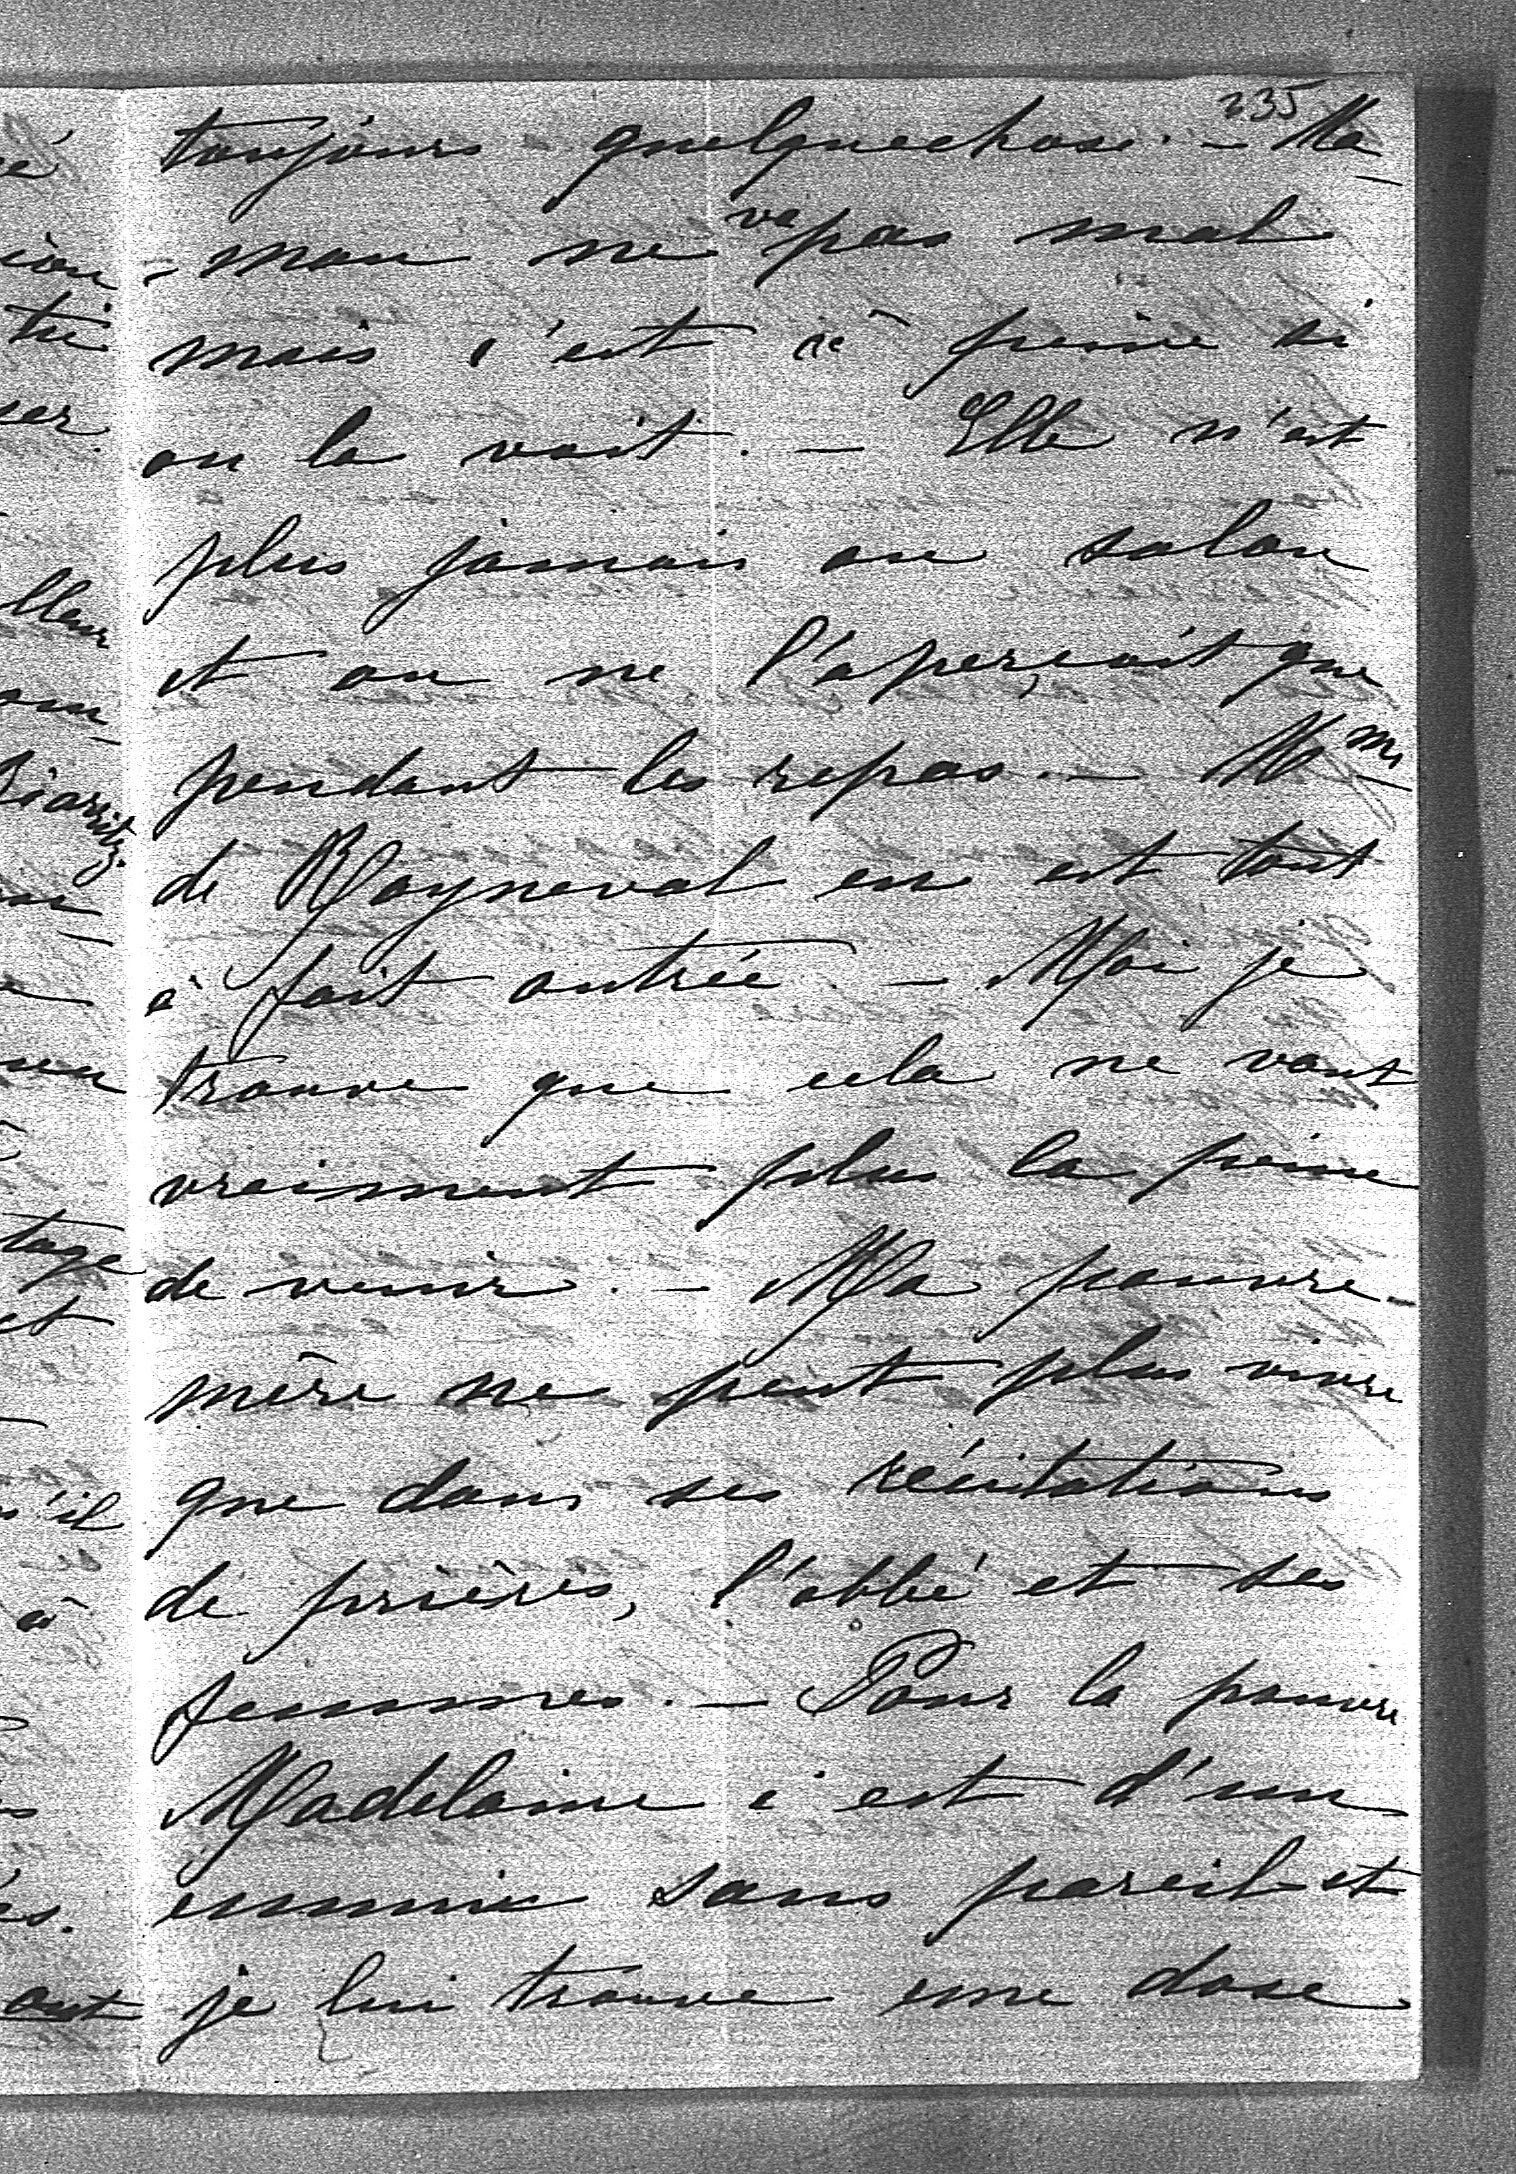 235
toujours quelquechose. – Ma-
- man ne va pas mal
mais c'est à peine si
on la voit. – Elle n'est
plus jamais au salon
et on ne l'aperçoit que
pendant les repas. – Mme
de Rayneval en est tout
à fait outrée – Moi je
trouve que cela ne vaut
vraiment plus la peine
de venir. – Ma pauvre
mère ne peut plus vivre
que dans ses récitations
de prières, l'abbé et ses
femmes. – Pour la pauvre
Madelaine c'est d'un
ennui sans pareil et
je lui trouve une dose